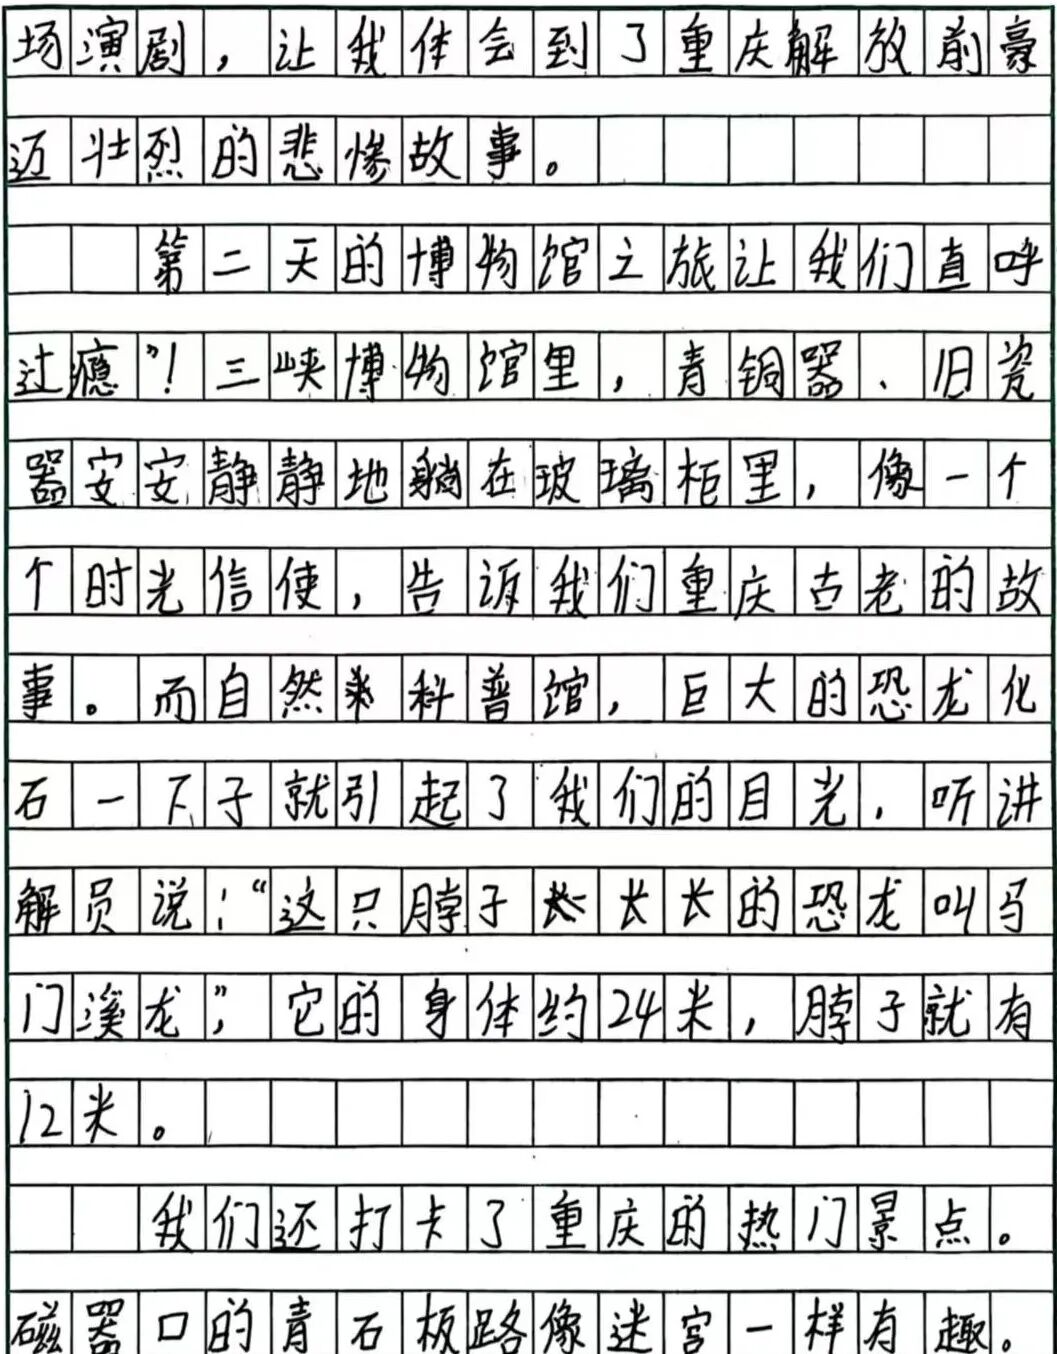 场演剧，让我体会到了重庆解放前豪
迈壮烈的悲惨故事。
第二天的博物馆之旅让我们直呼
过瘾”！三峡博物馆里，青铜器、旧瓷
器安安静静地躺在玻璃柜里，像一个
个时光信使，告诉我们重庆古老的故
事。而自然科普馆，巨大的恐龙化
石一下子就引起了我们的目光，听讲
解员说：“这只脖子长长的恐龙叫马
门溪龙”，它的身体约24米，脖子就有
12米。
我们还打卡了重庆的热门景点。
磁器口的青石板路像迷宫一样有趣。